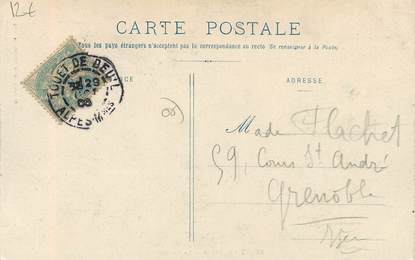 12€
CARTE POSTALE
Tous les pays étrangers n'acceptent pas la correspondance au recto (Se renseigner à la Poste).
NCE
ADRESSE
TOUET DE BEUIL
29
08
ALPES-Mmes
Made Flachet
59, Cours St André
Grenoble